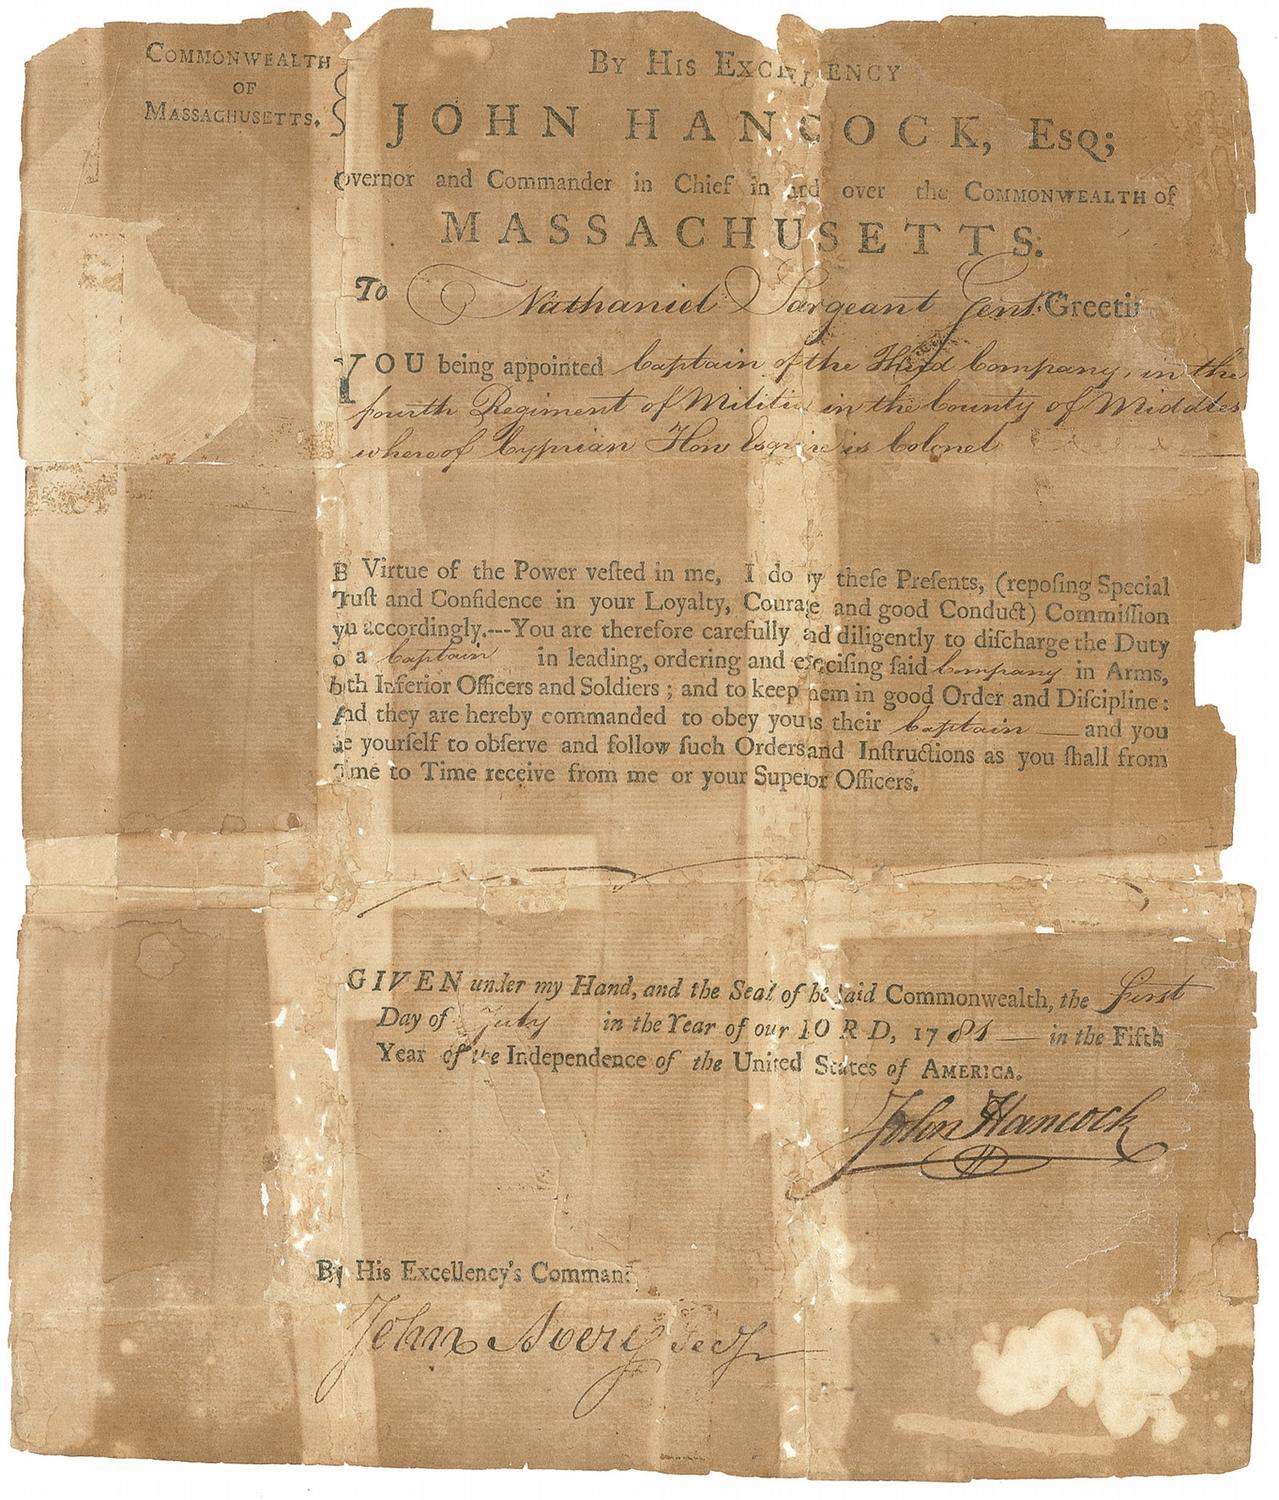 COMMONWEALTH
OF
MASSACHUSETTS.
BY HIS EXCELLENCY
JOHN HANCOCK, ESQ;
overnor and Commander in Chief in and over the COMMONWEALTH of
MASSACHUSETTS.
To Nathaniel Sargeant Gent. Greeti
YOU being appointed Captain of the Third Company, in the
fourth Regiment of Militia in the County of Middles
whereof Cyprian How Esquire is Colonel
B Virtue of the Power veſted in me, I do y theſe Preſents, (repoſing Special
Truſt and Confidence in your Loyalty, Courage and good Conduct) Commiſſion
yu accordingly.---You are therefore carefully ad diligently to diſcharge the Duty
o a Captain in leading, ordering and exerciſing ſaid Company in Arms,
bth Inferior Officers and Soldiers; and to keep hem in good Order and Diſcipline:
And they are hereby commanded to obey you s their Captain — and you
re yourſelf to obſerve and follow ſuch Orders and Inſtructions as you ſhall from
Time to Time receive from me or your Superor Officers.
GIVEN under my Hand, and the Seal of he ſaid Commonwealth, the first
Day of July in the Year of our LORD, 1781 — in the Fifth
Year of the Independence of the United States of AMERICA.
John Hancock
By His Excellency's Command
John Avery Secy